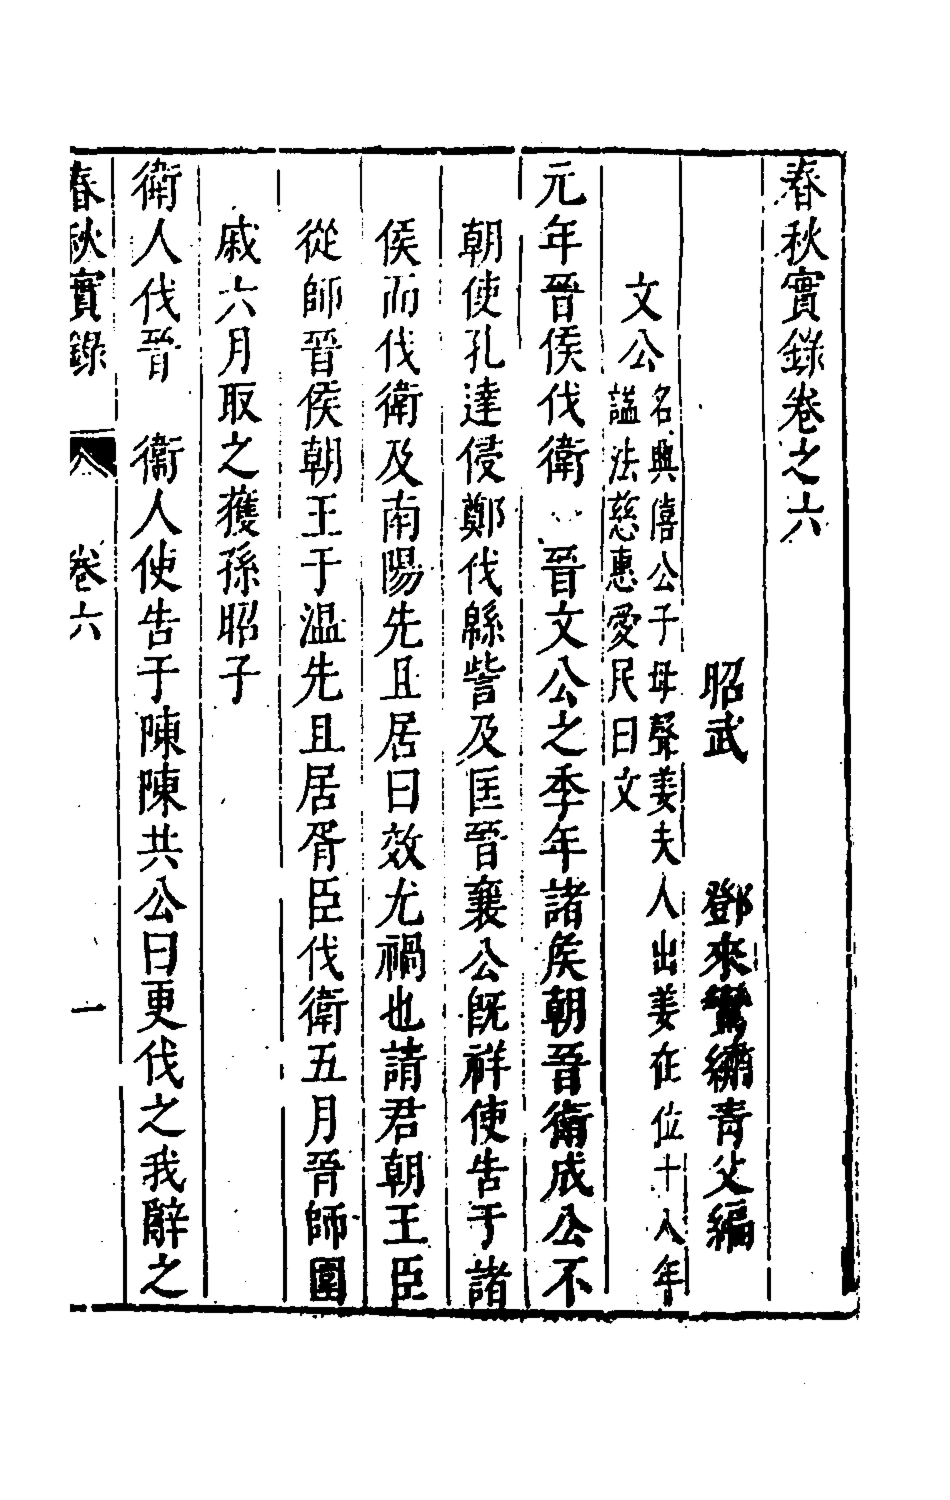 春秋實錄卷之六
昭武　鄧來鸞繡青父編
文公
名興僖公子母聲姜夫人出姜在位十八年
諡法慈惠愛民曰文
元年晉侯伐衛　晉文公之季年諸侯朝晉衛成公不
朝使孔達侵鄭伐緜訾及匡晉襄公既祥使告于諸
侯而伐衛及南陽先且居曰效尤禍也請君朝王臣
從師晉侯朝王于溫先且居胥臣伐衛五月晉師圍
戚六月取之獲孫昭子
衛人伐晉　衛人使告于陳陳共公曰更伐之我辭之
春秋實錄　卷六　一